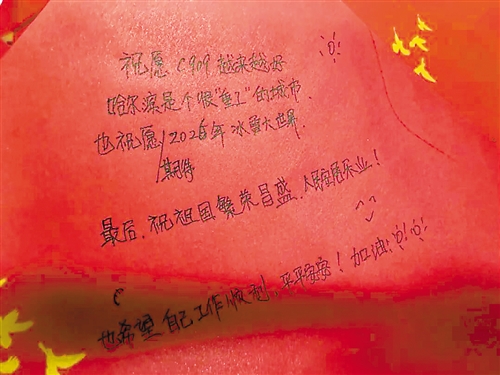 祝愿 C909 越来越好
哈尔滨是个很"重工"的城市.
也祝愿/2025年 冰雪大世界.
期待
最后, 祝祖国繁荣昌盛, 人民安居乐业!
也希望自己工作顺利, 平平安安! 加油